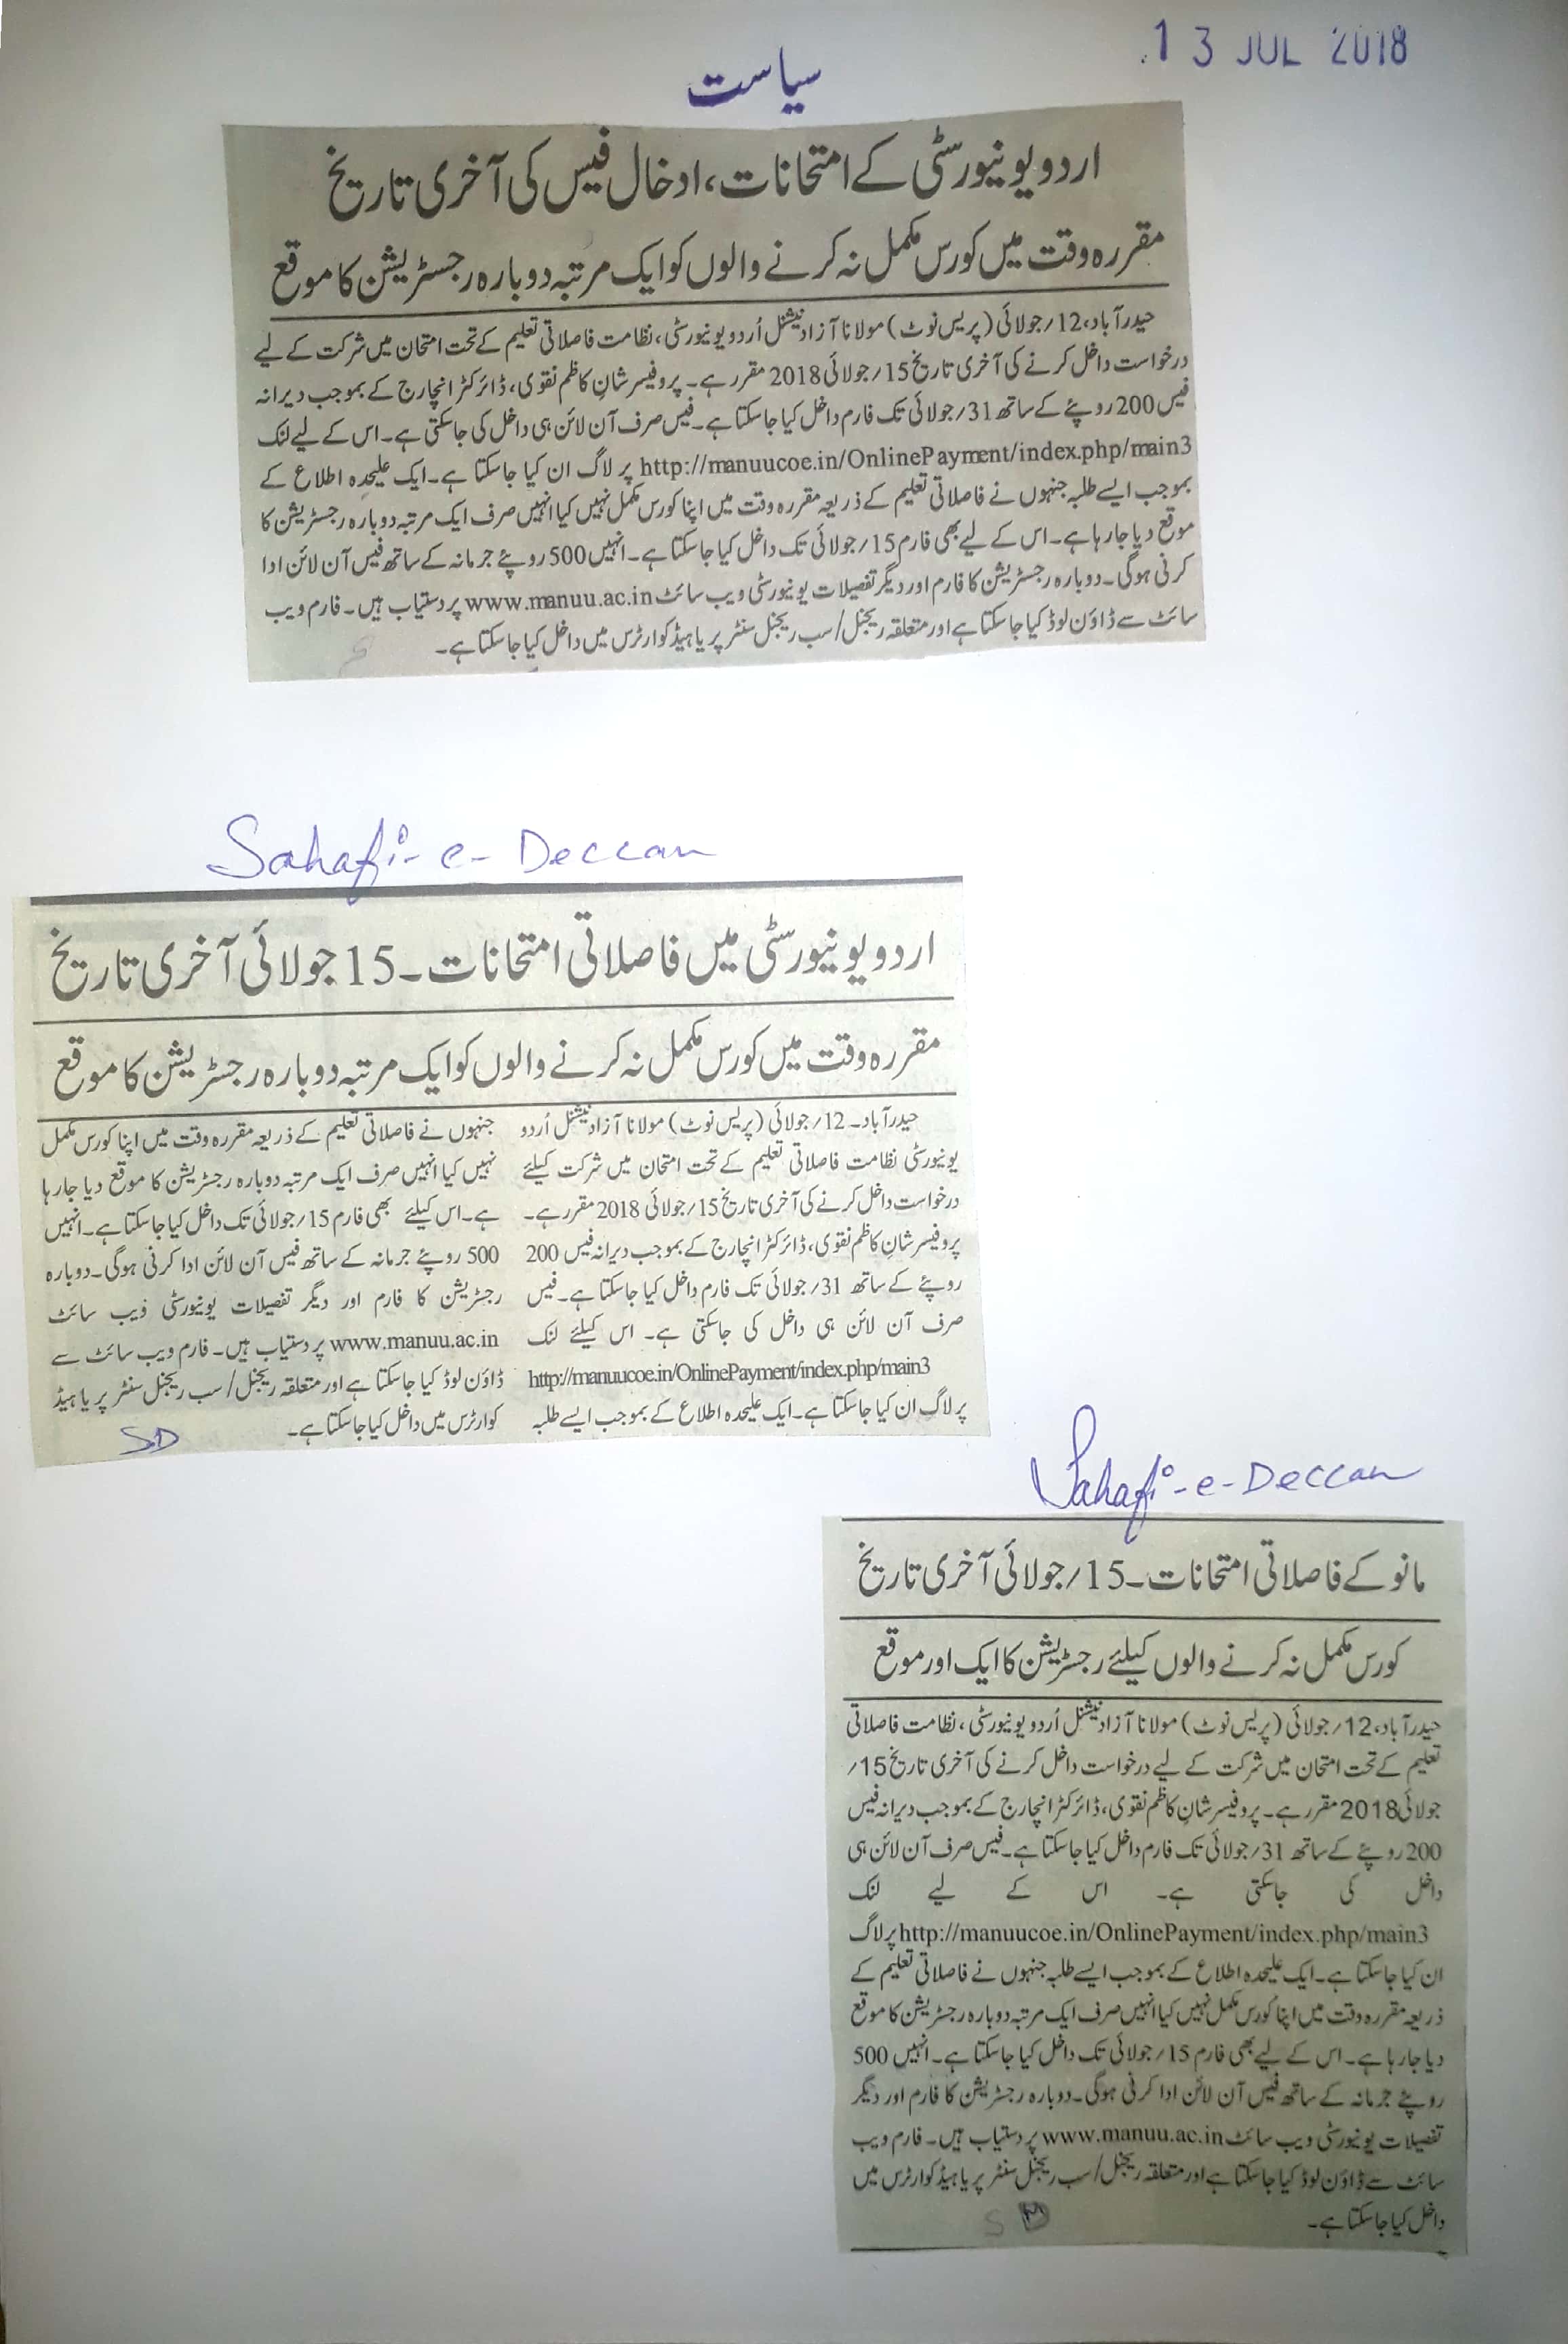 13 JUL 2018
سیاست
اردو یونیورسٹی کے امتحانات، ادخال فیس کی آخری تاریخ
مقررہ وقت میں کورس مکمل نہ کرنے والوں کو ایک مرتبہ دوبارہ رجسٹریشن کا موقع
حیدرآباد، 12؍جولائی (پریس نوٹ) مولانا آزاد نیشنل اُردو یونیورسٹی، نظامت فاصلاتی تعلیم کے تحت امتحان میں شرکت کے لیے
درخواست داخل کرنے کی آخری تاریخ 15؍جولائی 2018 مقرر ہے۔ پروفیسر شانِ کاظم نقوی، ڈائرکٹر انچارج کے بموجب دیرانہ
فیس 200 روپئے کے ساتھ 31؍جولائی تک فارم داخل کیا جاسکتا ہے۔ فیس صرف آن لائن ہی داخل کی جاسکتی ہے۔ اس کے لیے لنک
http://manuucoe.in/OnlinePayment/index.php/main3 پر لاگ ان کیا جاسکتا ہے۔ ایک علیحدہ اطلاع کے
بموجب ایسے طلبہ جنہوں نے فاصلاتی تعلیم کے ذریعہ مقررہ وقت میں اپنا کورس مکمل نہیں کیا انہیں صرف ایک مرتبہ دوبارہ رجسٹریشن کا
موقع دیا جارہا ہے۔ اس کے لیے بھی فارم 15؍جولائی تک داخل کیا جاسکتا ہے۔ انہیں 500 روپئے جرمانہ کے ساتھ فیس آن لائن ادا
کرنی ہوگی۔ دوبارہ رجسٹریشن کا فارم اور دیگر تفصیلات یونیورسٹی ویب سائٹ www.manuu.ac.in پر دستیاب ہیں۔ فارم ویب
سائٹ سے ڈاؤن لوڈ کیا جاسکتا ہے اور متعلقہ ریجنل/سب ریجنل سنٹر پر یا ہیڈ کوارٹرس میں داخل کیا جاسکتا ہے۔
Sahafi-e-Deccan
اردو یونیورسٹی میں فاصلاتی امتحانات۔ 15 جولائی آخری تاریخ
مقررہ وقت میں کورس مکمل نہ کرنے والوں کو ایک مرتبہ دوبارہ رجسٹریشن کا موقع
حیدرآباد۔ 12؍جولائی (پریس نوٹ) مولانا آزاد نیشنل اُردو
یونیورسٹی نظامت فاصلاتی تعلیم کے تحت امتحان میں شرکت کیلئے
درخواست داخل کرنے کی آخری تاریخ 15؍جولائی 2018 مقرر ہے۔
پروفیسر شانِ کاظم نقوی، ڈائرکٹر انچارج کے بموجب دیرانہ فیس 200
روپئے کے ساتھ 31؍جولائی تک فارم داخل کیا جاسکتا ہے۔ فیس
صرف آن لائن ہی داخل کی جاسکتی ہے۔ اس کیلئے لنک
http://manuucoe.in/OnlinePayment/index.php/main3
پر لاگ ان کیا جاسکتا ہے۔ ایک علیحدہ اطلاع کے بموجب ایسے طلبہ
جنہوں نے فاصلاتی تعلیم کے ذریعہ مقررہ وقت میں اپنا کورس مکمل
نہیں کیا انہیں صرف ایک مرتبہ دوبارہ رجسٹریشن کا موقع دیا جارہا
ہے۔ اس کیلئے بھی فارم 15؍جولائی تک داخل کیا جاسکتا ہے۔ انہیں
500 روپئے جرمانہ کے ساتھ فیس آن لائن ادا کرنی ہوگی۔ دوبارہ
رجسٹریشن کا فارم اور دیگر تفصیلات یونیورسٹی ویب سائٹ
www.manuu.ac.in پر دستیاب ہیں۔ فارم ویب سائٹ سے
ڈاؤن لوڈ کیا جاسکتا ہے اور متعلقہ ریجنل/سب ریجنل سنٹر پر یا ہیڈ
کوارٹرس میں داخل کیا جاسکتا ہے۔
SD
Sahafi-e-Deccan
مانو کے فاصلاتی امتحانات۔ 15؍جولائی آخری تاریخ
کورس مکمل نہ کرنے والوں کیلئے رجسٹریشن کا ایک اور موقع
حیدرآباد، 12؍جولائی (پریس نوٹ) مولانا آزاد نیشنل اُردو یونیورسٹی، نظامت فاصلاتی
تعلیم کے تحت امتحان میں شرکت کے لیے درخواست داخل کرنے کی آخری تاریخ 15؍
جولائی 2018 مقرر ہے۔ پروفیسر شانِ کاظم نقوی، ڈائرکٹر انچارج کے بموجب دیرانہ فیس
200 روپئے کے ساتھ 31؍جولائی تک فارم داخل کیا جاسکتا ہے۔ فیس صرف آن لائن ہی
داخل کی جاسکتی ہے۔ اس کے لیے لنک
http://manuucoe.in/OnlinePayment/index.php/main3 پر لاگ
ان کیا جاسکتا ہے۔ ایک علیحدہ اطلاع کے بموجب ایسے طلبہ جنہوں نے فاصلاتی تعلیم کے
ذریعہ مقررہ وقت میں اپنا کورس مکمل نہیں کیا انہیں صرف ایک مرتبہ دوبارہ رجسٹریشن کا موقع
دیا جارہا ہے۔ اس کے لیے بھی فارم 15؍جولائی تک داخل کیا جاسکتا ہے۔ انہیں 500
روپئے جرمانہ کے ساتھ فیس آن لائن ادا کرنی ہوگی۔ دوبارہ رجسٹریشن کا فارم اور دیگر
تفصیلات یونیورسٹی ویب سائٹ www.manuu.ac.in پر دستیاب ہیں۔ فارم ویب
سائٹ سے ڈاؤن لوڈ کیا جاسکتا ہے اور متعلقہ ریجنل/سب ریجنل سنٹر پر یا ہیڈ کوارٹرس میں
داخل کیا جاسکتا ہے۔